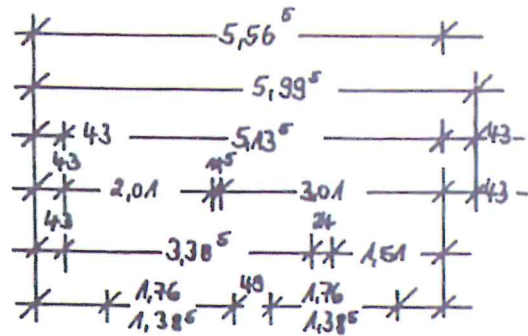 5,56⁵
5,99⁵
43 5,13⁵ 43
43 2,01 11⁵ 3,01 43
43 3,38⁵ 24 1,51
1,76 49 1,76
1,38⁵ 1,38⁵